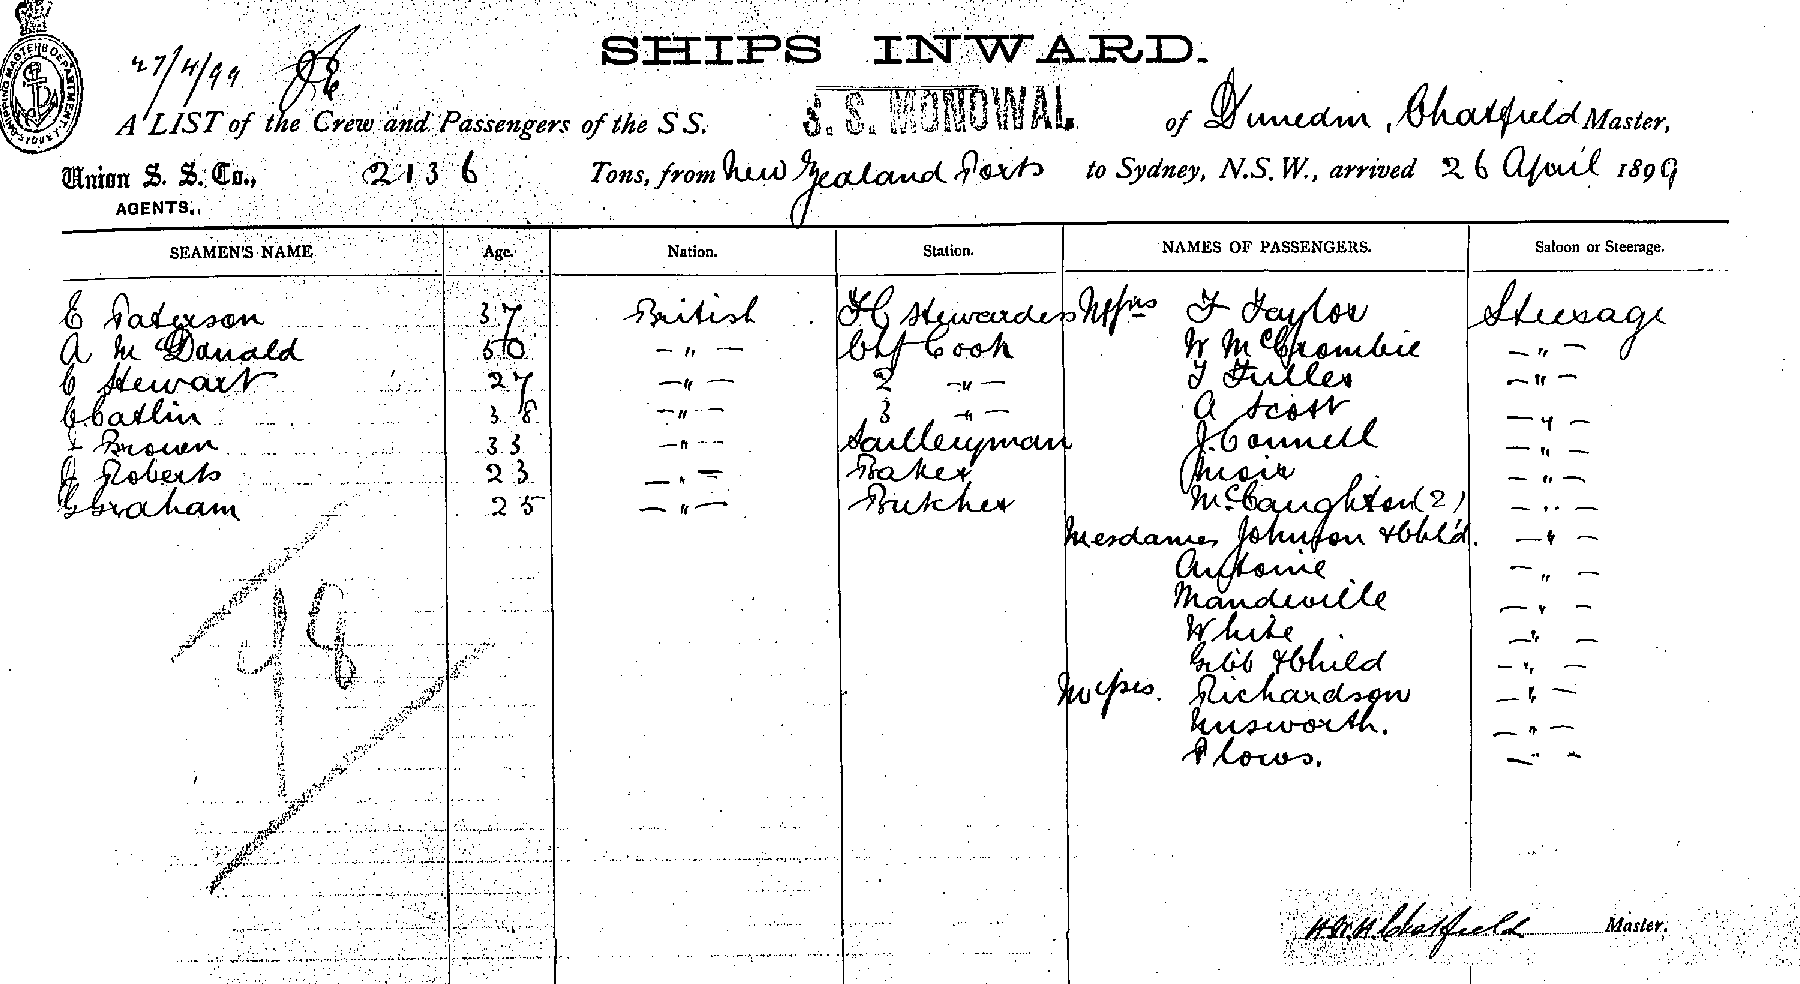 SHIPS INWARD.
27/4/99
A LIST of the Crew and Passengers of the S S. S. S. MONOWAI. of Dunedin, Chatfield Master,
Union S. S. Co., 2136 Tons, from New Zealand Ports to Sydney, N.S.W., arrived 26 April 1899
AGENTS.
SEAMEN'S NAME Age. Nation. Station. NAMES OF PASSENGERS. Saloon or Steerage.
E Paterson 37 British F C Stewardess Messrs F Taylor Steerage
A McDonald 50 — " — Chf Cook W McCrombie — " —
C Stewart 27 — " — 2 — " — T Fuller — " —
C Catlin 38 — " — 3 — " — A Scott — " —
Brown 33 — " — Sculleryman J. Connell — " —
J Roberts 23 — " — Baker Muir — " —
G Graham 25 — " — Butcher McCaughton (2) — " —
Mesdames Johnson & Chld. — " —
Antoine — " —
Mandeville — " —
White — " —
Gibb & Child — " —
Misses. Richardson — " —
— " —
Plows. — " —
98
Chatfield Master.